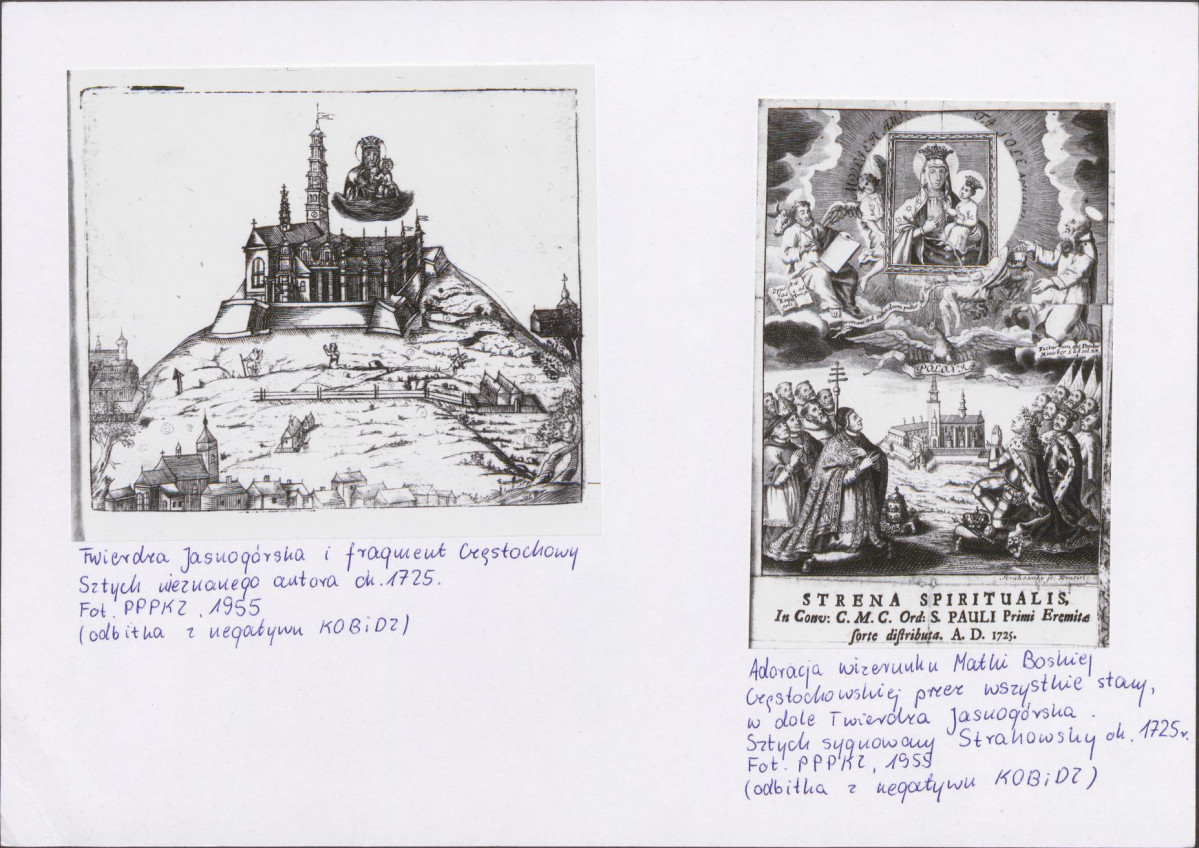 Twierdza Jasnogórska i fragment Częstochowy
Sztych nieznanego autora ok. 1725.
Fot. PPPKZ, 1955
(odbitka z negatywu KOBiDZ)
POLONIA
Strahowsky sc: Wratisl:
STRENA SPIRITUALIS,
In Conv: C. M. C. Ord: S. PAULI Primi Eremitæ
sorte distributa. A. D. 1725.
Adoracja wizerunku Matki Boskiej
Częstochowskiej przez wszystkie stany,
w dole Twierdza Jasnogórska.
Sztych sygnowany Strahowsky ok. 1725 r.
Fot. PPPKZ, 1955
(odbitka z negatywu KOBiDZ)